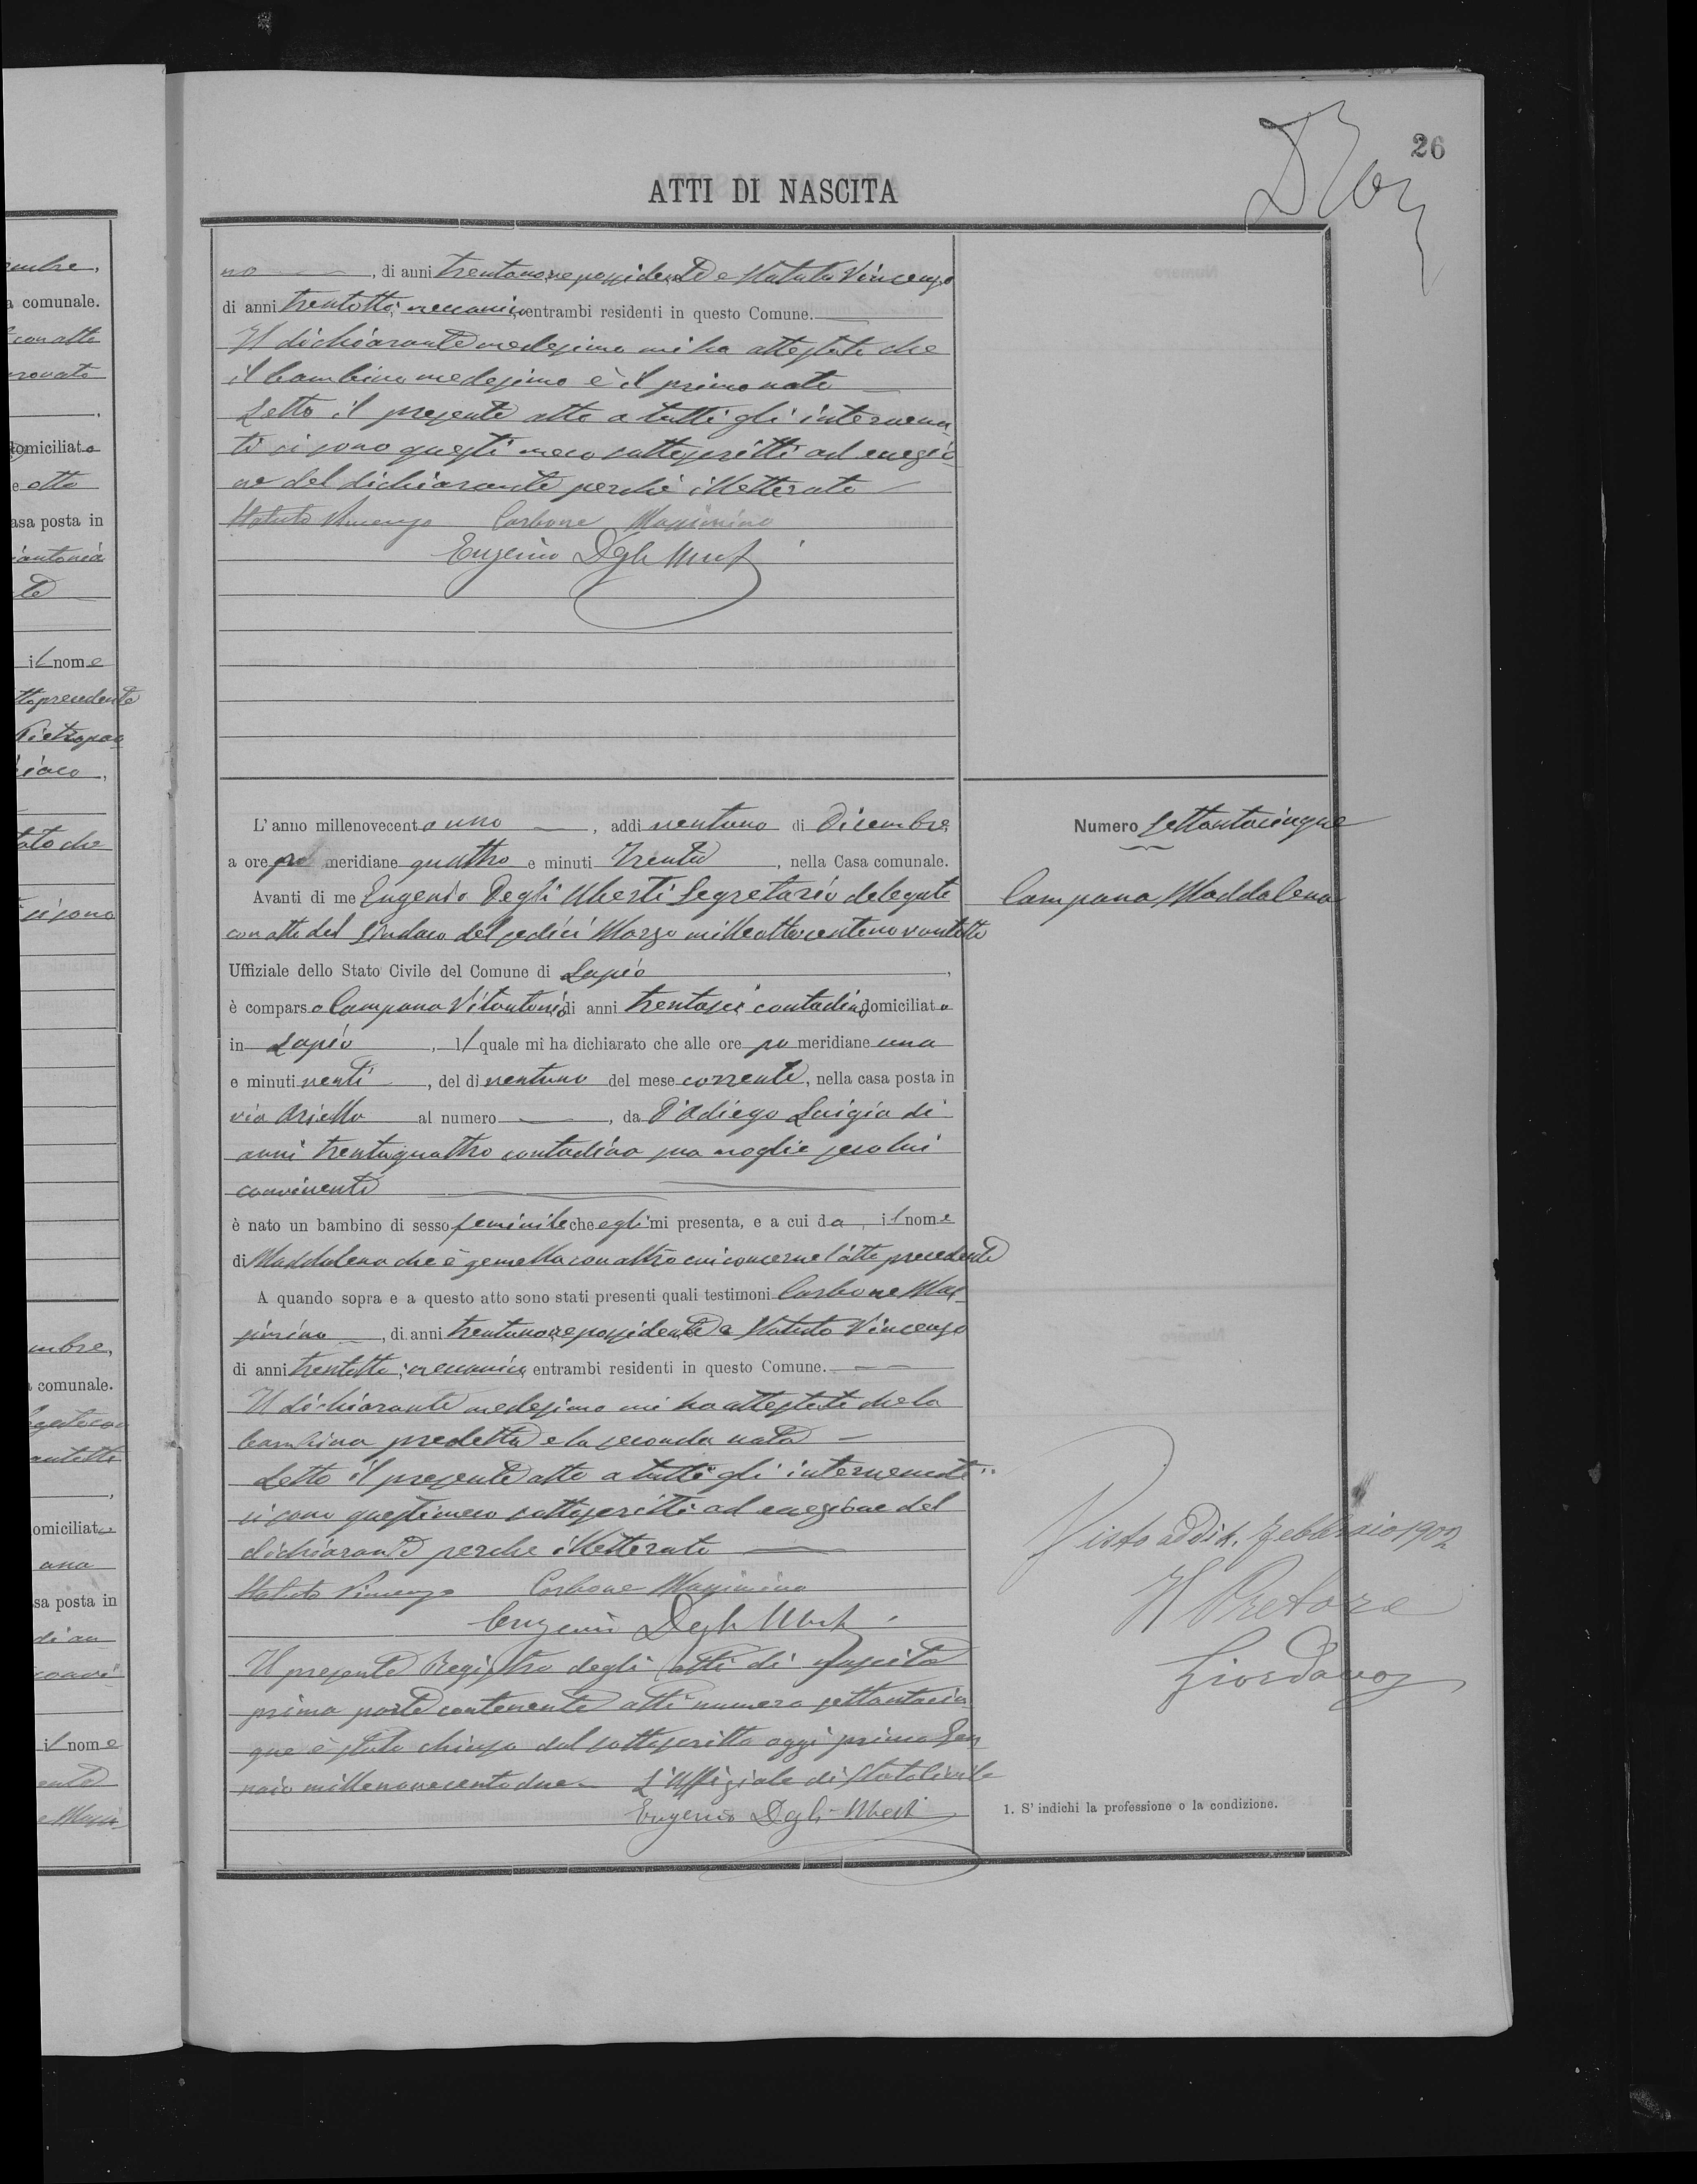 26
ATTI DI NASCITA
no, di anni trentanove possidente e Statuto Vincenzo
di anni trentotto, meccanico entrambi residenti in questo Comune.
Il dichiarante medesimo mi ha attestato che
il bambino medesimo è il primo nato
Letto il presente atto a tutti gli intervenu
ti si sono questi meco sottoscritti ad eccezio
ne del dichiarante perché illetterato
Statuto Vincenzo Carbone Massimino
Eugenio Degli Uberti
L'anno millenovecento uno, addi ventuno di Dicembre
a ore po meridiane quattro e minuti Trenta, nella Casa comunale.
Avanti di me Eugenio Degli Uberti Segretario delegato
con atto del Sindaco del sedici Marzo milleottocentonovantotto
Uffiziale dello Stato Civile del Comune di Lapio,
è comparso Campana Vitantonio di anni trentasei contadino domiciliato
in Lapio, il quale mi ha dichiarato che alle ore po meridiane una
e minuti venti, del di ventuno del mese corrente, nella casa posta in
via Ariella al numero, da D'Adiego Luigia di
anni trentaquattro contadina sua moglie seco lui
convivente
è nato un bambino di sesso feminile che egli mi presenta, e a cui da il nome
di Maddalena che è gemella con altro cui concerne l'atto precedente
A quando sopra e a questo atto sono stati presenti quali testimoni Carbone Mas
simino, di anni trentanove possidente e Statuto Vincenzo
di anni trentotto, meccanico, entrambi residenti in questo Comune.
Il dichiarante medesimo mi ha attestato che la
bambina predetta e la seconda nata
Letto il presente atto a tutti gli intervenuti
si sono questi meco sottoscritti ad eccezione del
dichiarante perche illetterato
Statuto Vincenzo Carbone Massimino
Eugenio Degli Uberti
Il presente Registro degli atti di Nascita
prima parte contenente atti numero settantacin
que è stato chiuso dal sottoscritto oggi primo Gen
naio millenovecentodue L'Uffiziale di Stato Civile
Eugenio Degli Uberti
Numero Settantacinque
Campana Maddalena
Visto addi Febbraio 1902
Il Pretore
Giordano
1. S' indichi la professione o la condizione.